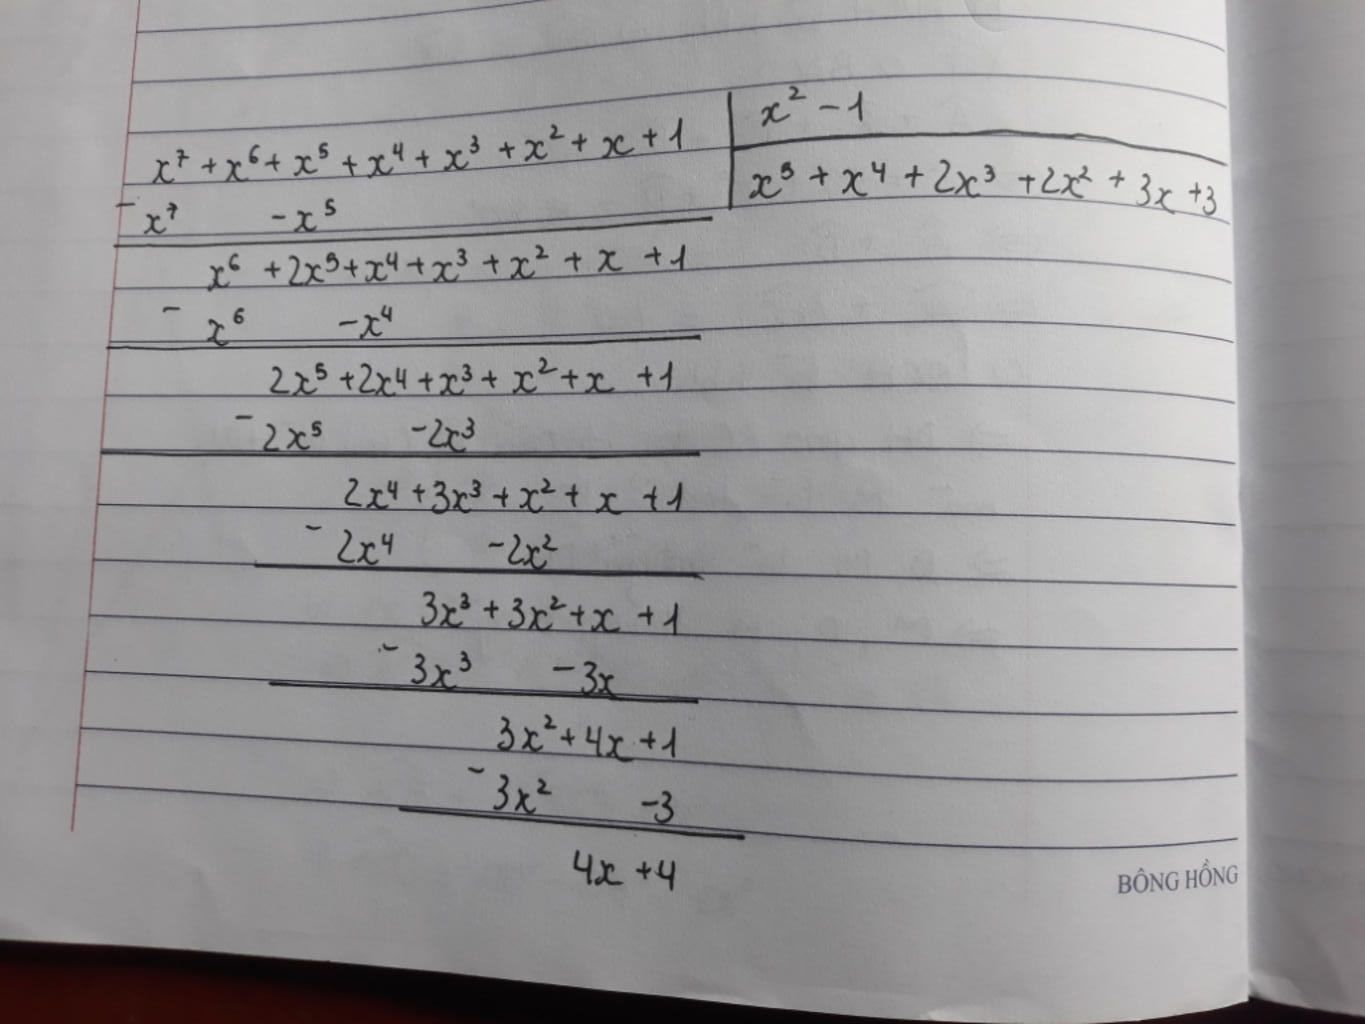 x⁷ + x⁶ + x⁵ + x⁴ + x³ + x² + x + 1 | x² - 1
- x⁷ - x⁵ | x⁵ + x⁴ + 2x³ + 2x² + 3x + 3
x⁶ + 2x⁵ + x⁴ + x³ + x² + x + 1
- x⁶ - x⁴
2x⁵ + 2x⁴ + x³ + x² + x + 1
- 2x⁵ - 2x³
2x⁴ + 3x³ + x² + x + 1
- 2x⁴ - 2x²
3x³ + 3x² + x + 1
- 3x³ - 3x
3x² + 4x + 1
- 3x² - 3
4x + 4
BÔNG HỒNG